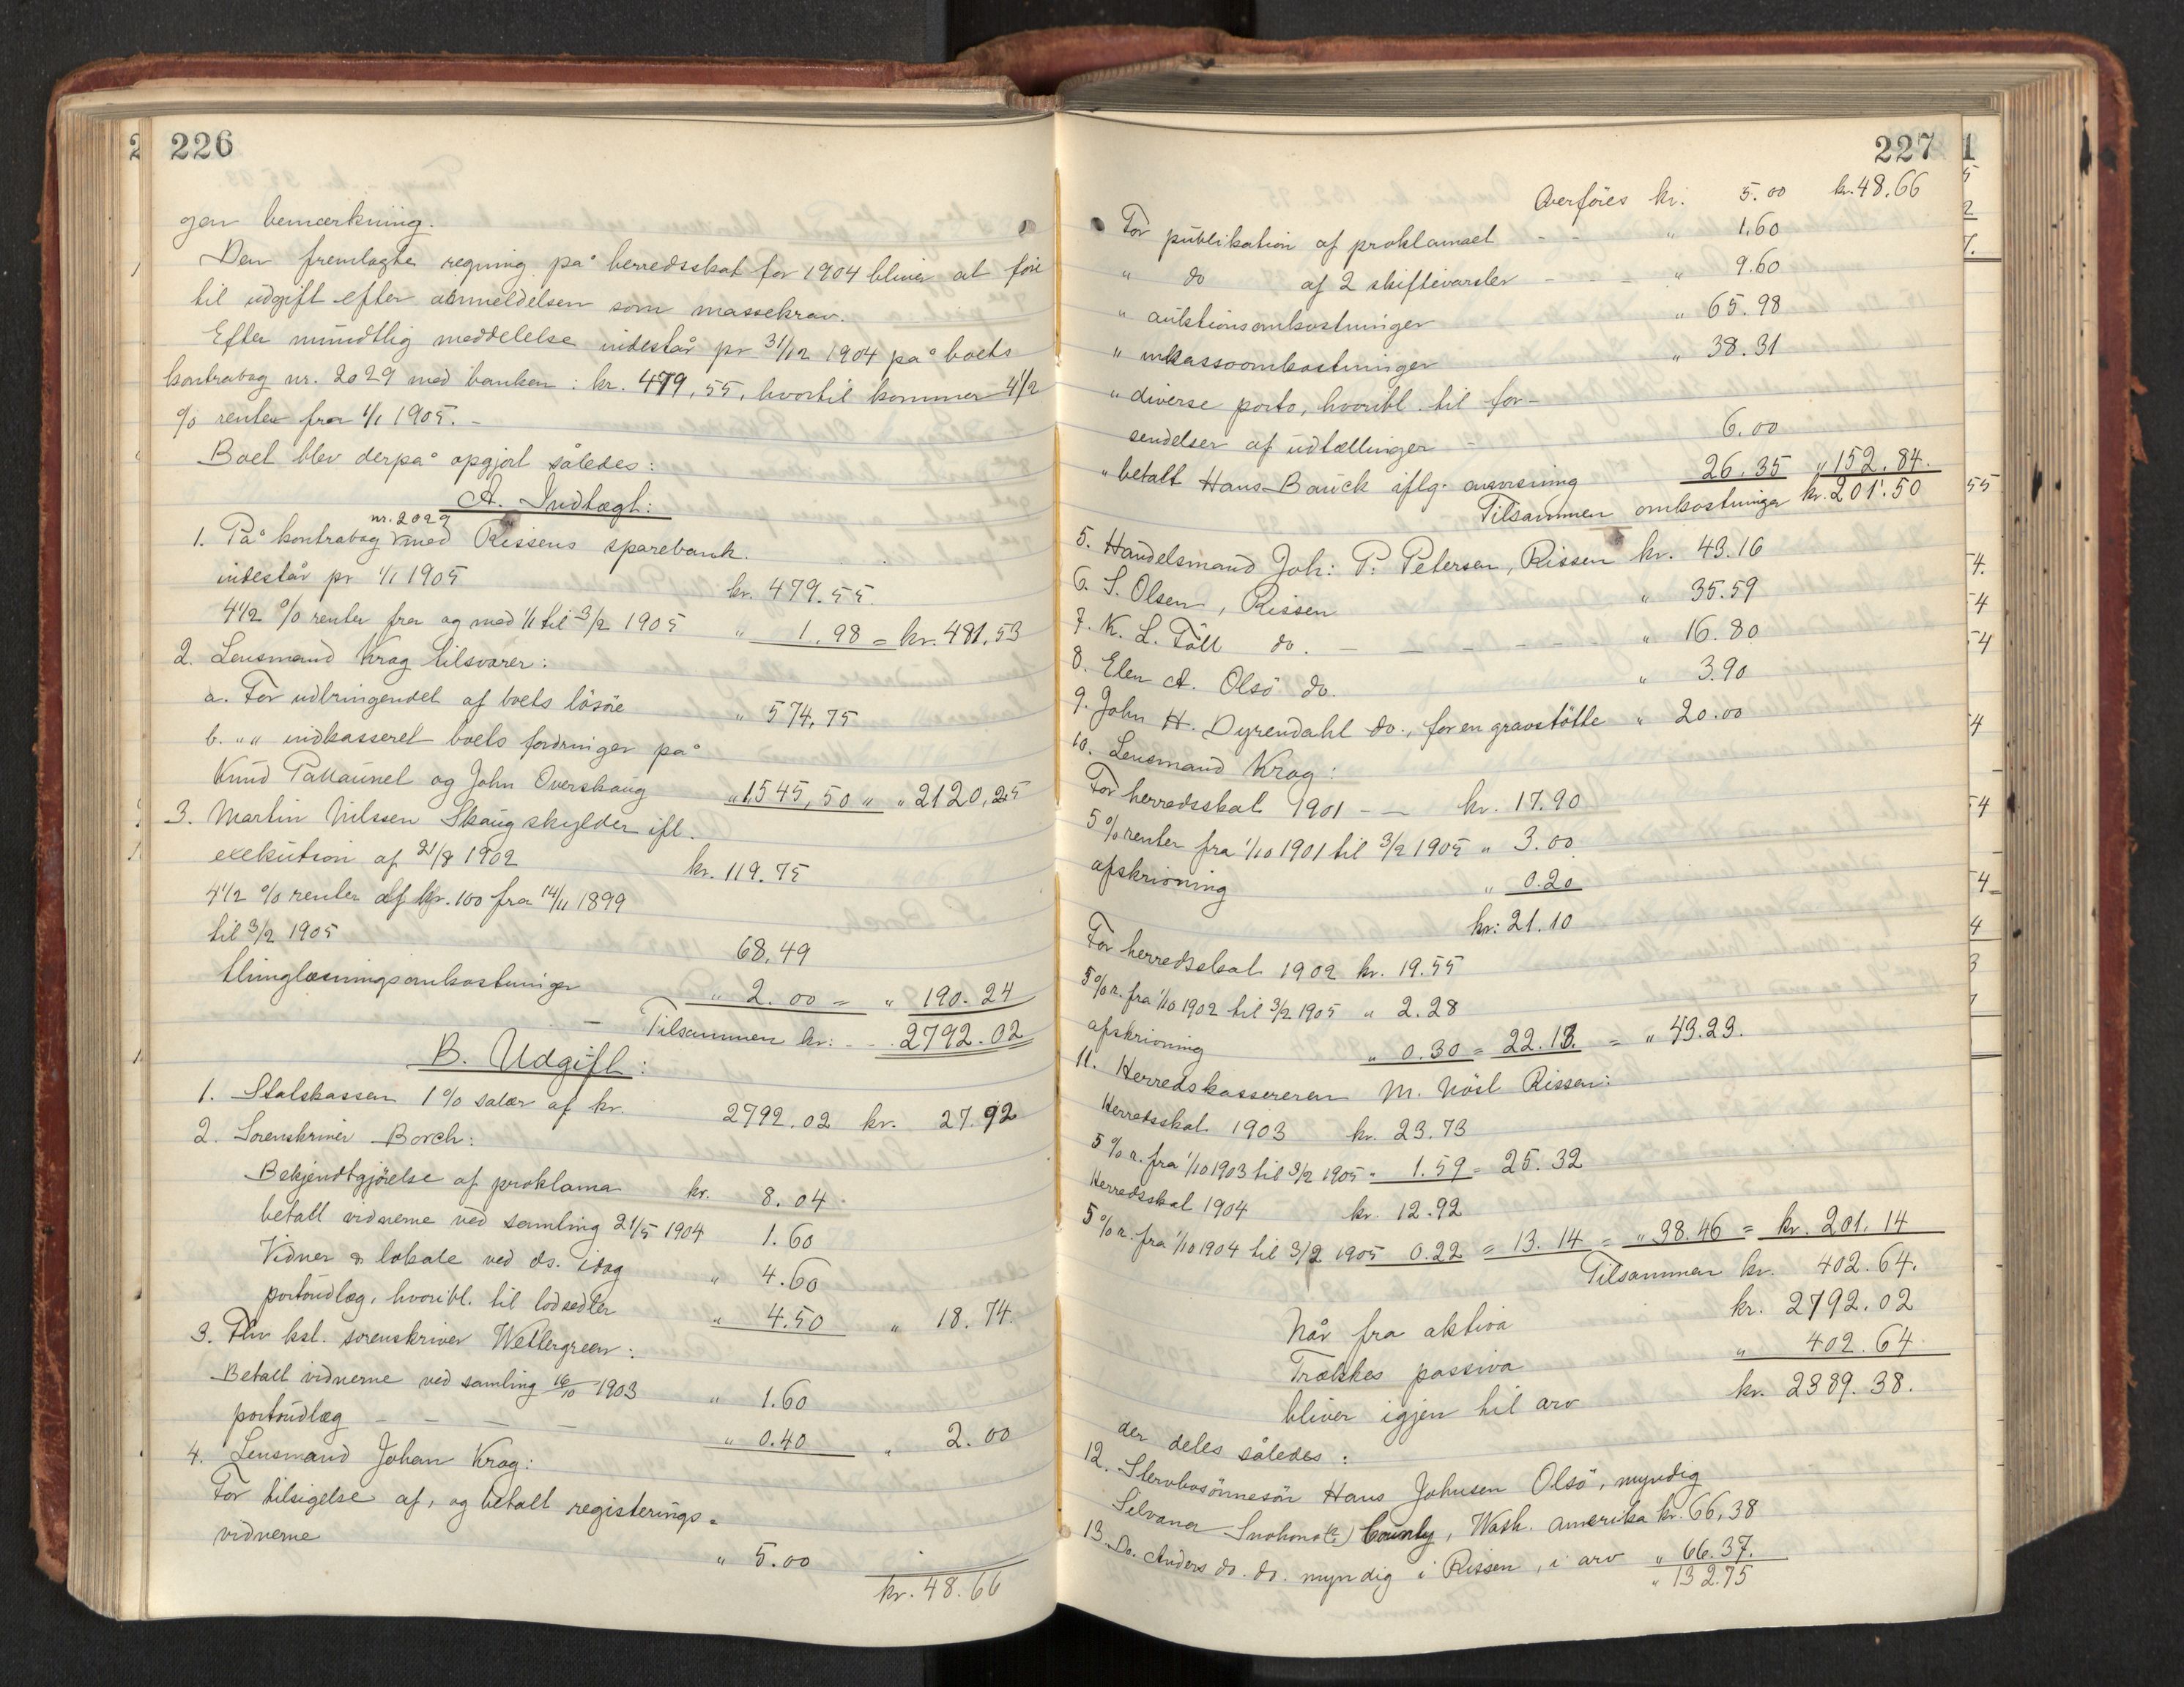 226
gen bemærkning.
Den fremlagte regning på herredsskat for 1904 bliver at före
til udgift efter anmeldelsen som massekrav.
Efter mundtlig meddelelse indestår pr 31/12 1904 på boets
kontrabog nr. 2029 med banken: kr. 479,55, hvortil kommer 4 1/2
% renter fra 1/1 1905. -
Boet blev derpå opgjort således:
A. Indtægt:
1. På kontrabog nr. 2029 med Rissens sparebank.
indestår pr 1/1 1905 kr. 479.55.
4 1/2 % renter fra og med 1/1 til 3/2 1905 " 1.98 = kr. 481,53
2. Lensmand Krog tilsvarer:
a. For udbringendet af boets lösöre " 574,75
b. " " indkasseret boets fordringer på
Knud Pallaunet og John Overskaug " 1,545,50 " " 2120,25
3. Martin Nilssen Skaug skylder ifl.
exekution af 21/8 1902 kr. 119.75
4 1/2 % renter af kr. 100 fra 14/11 1899
til 3/2 1905 68,49
thinglæsningsomkostninger " 2.00 = " 190.24
Tilsammen kr: - - 2792.02
B. Udgift:
1. Statskassen 1 % salær af kr. 2792.02 kr. 27.92
2. Sorenskriver Borch:
Bekjendtgjörelse af proklama kr. 8.04.
betalt vidnerne ved samling 21/5 1904 1.60
Vidner & lokale ved ds. idag " 4.60
portoudlæg, hvoribl. til lodsedler " 4.50 " 18.74.
3. Fhv kst. sorenskriver Wettergreen:
Betalt vidnerne ved samling 16/10 1903 " 1.60
portoudlæg - - - - " 0.40 " 2.00
4. Lensmand Johan Krog:
For tilsigelse af, og betalt registerings=
vidnerne " 5.00
kr. 48.66
227
Overföres kr. 5.00 kr. 48.66
For publikation af proklamaet - - " 1.60
" do af 2 skiftevarsler - - - " 9.60
" auktionsomkostninger " 65.98
" inkassoomkostninger " 38.31
" diverse porto, hvoribl. til for-
sendelser af udtællinger - 6.00
" betalt Hans Bauck iflg. anvisning 26.35 " 152.84.
Tilsammen omkostninger kr. 201.50
5. Handelsmand Joh: P. Petersen, Rissen kr. 43.16
6. S. Olsen, Rissen " 35.59
7. K. L. Töll do. - - - - - " 16.80
8. Elen A. Olsö do. " 3.90
9. John H. Dyrendahl do., for en gravstötte " 20.00
10. Lensmand Krog:
For herredsskat 1901 - - kr. 17.90
5 % renter fra 1/10 1901 til 3/2 1905 " 3.00
afskrivning " 0.20
kr: 21.10
For herredsskat 1902 kr. 19.55
5 % r. fra 1/10 1902 til 3/2 1905 " 2.28
afskrivning " 0.30 = 22.13. = " 43.23.
11. Herredskassereren M. Nöst Rissen:
Herredsskat 1903 kr. 23.73
5 % r. fra 1/10 1903 til 3/2 1905 " 1.59 = 25.32
Herredsskat 1904 kr. 12.92
5 % r. fra 1/10 1904 til 3/2 1905 0.22 = 13.14 = " 38.46 = kr. 201.14
Tilsammen kr. 402.64.
Når fra aktiva kr. 2792.02
Trækkes passiva " 402.64
bliver igjen til arv kr. 2389.38.
der deles således:
12. Stervbosönnesön Hans Johnsen Olsö, myndig
Silvana County, Wash. Amerika kr. 66,38
13. Do. Anders do. do. myndig i Rissen, i arv " 66.37.
" 132.75